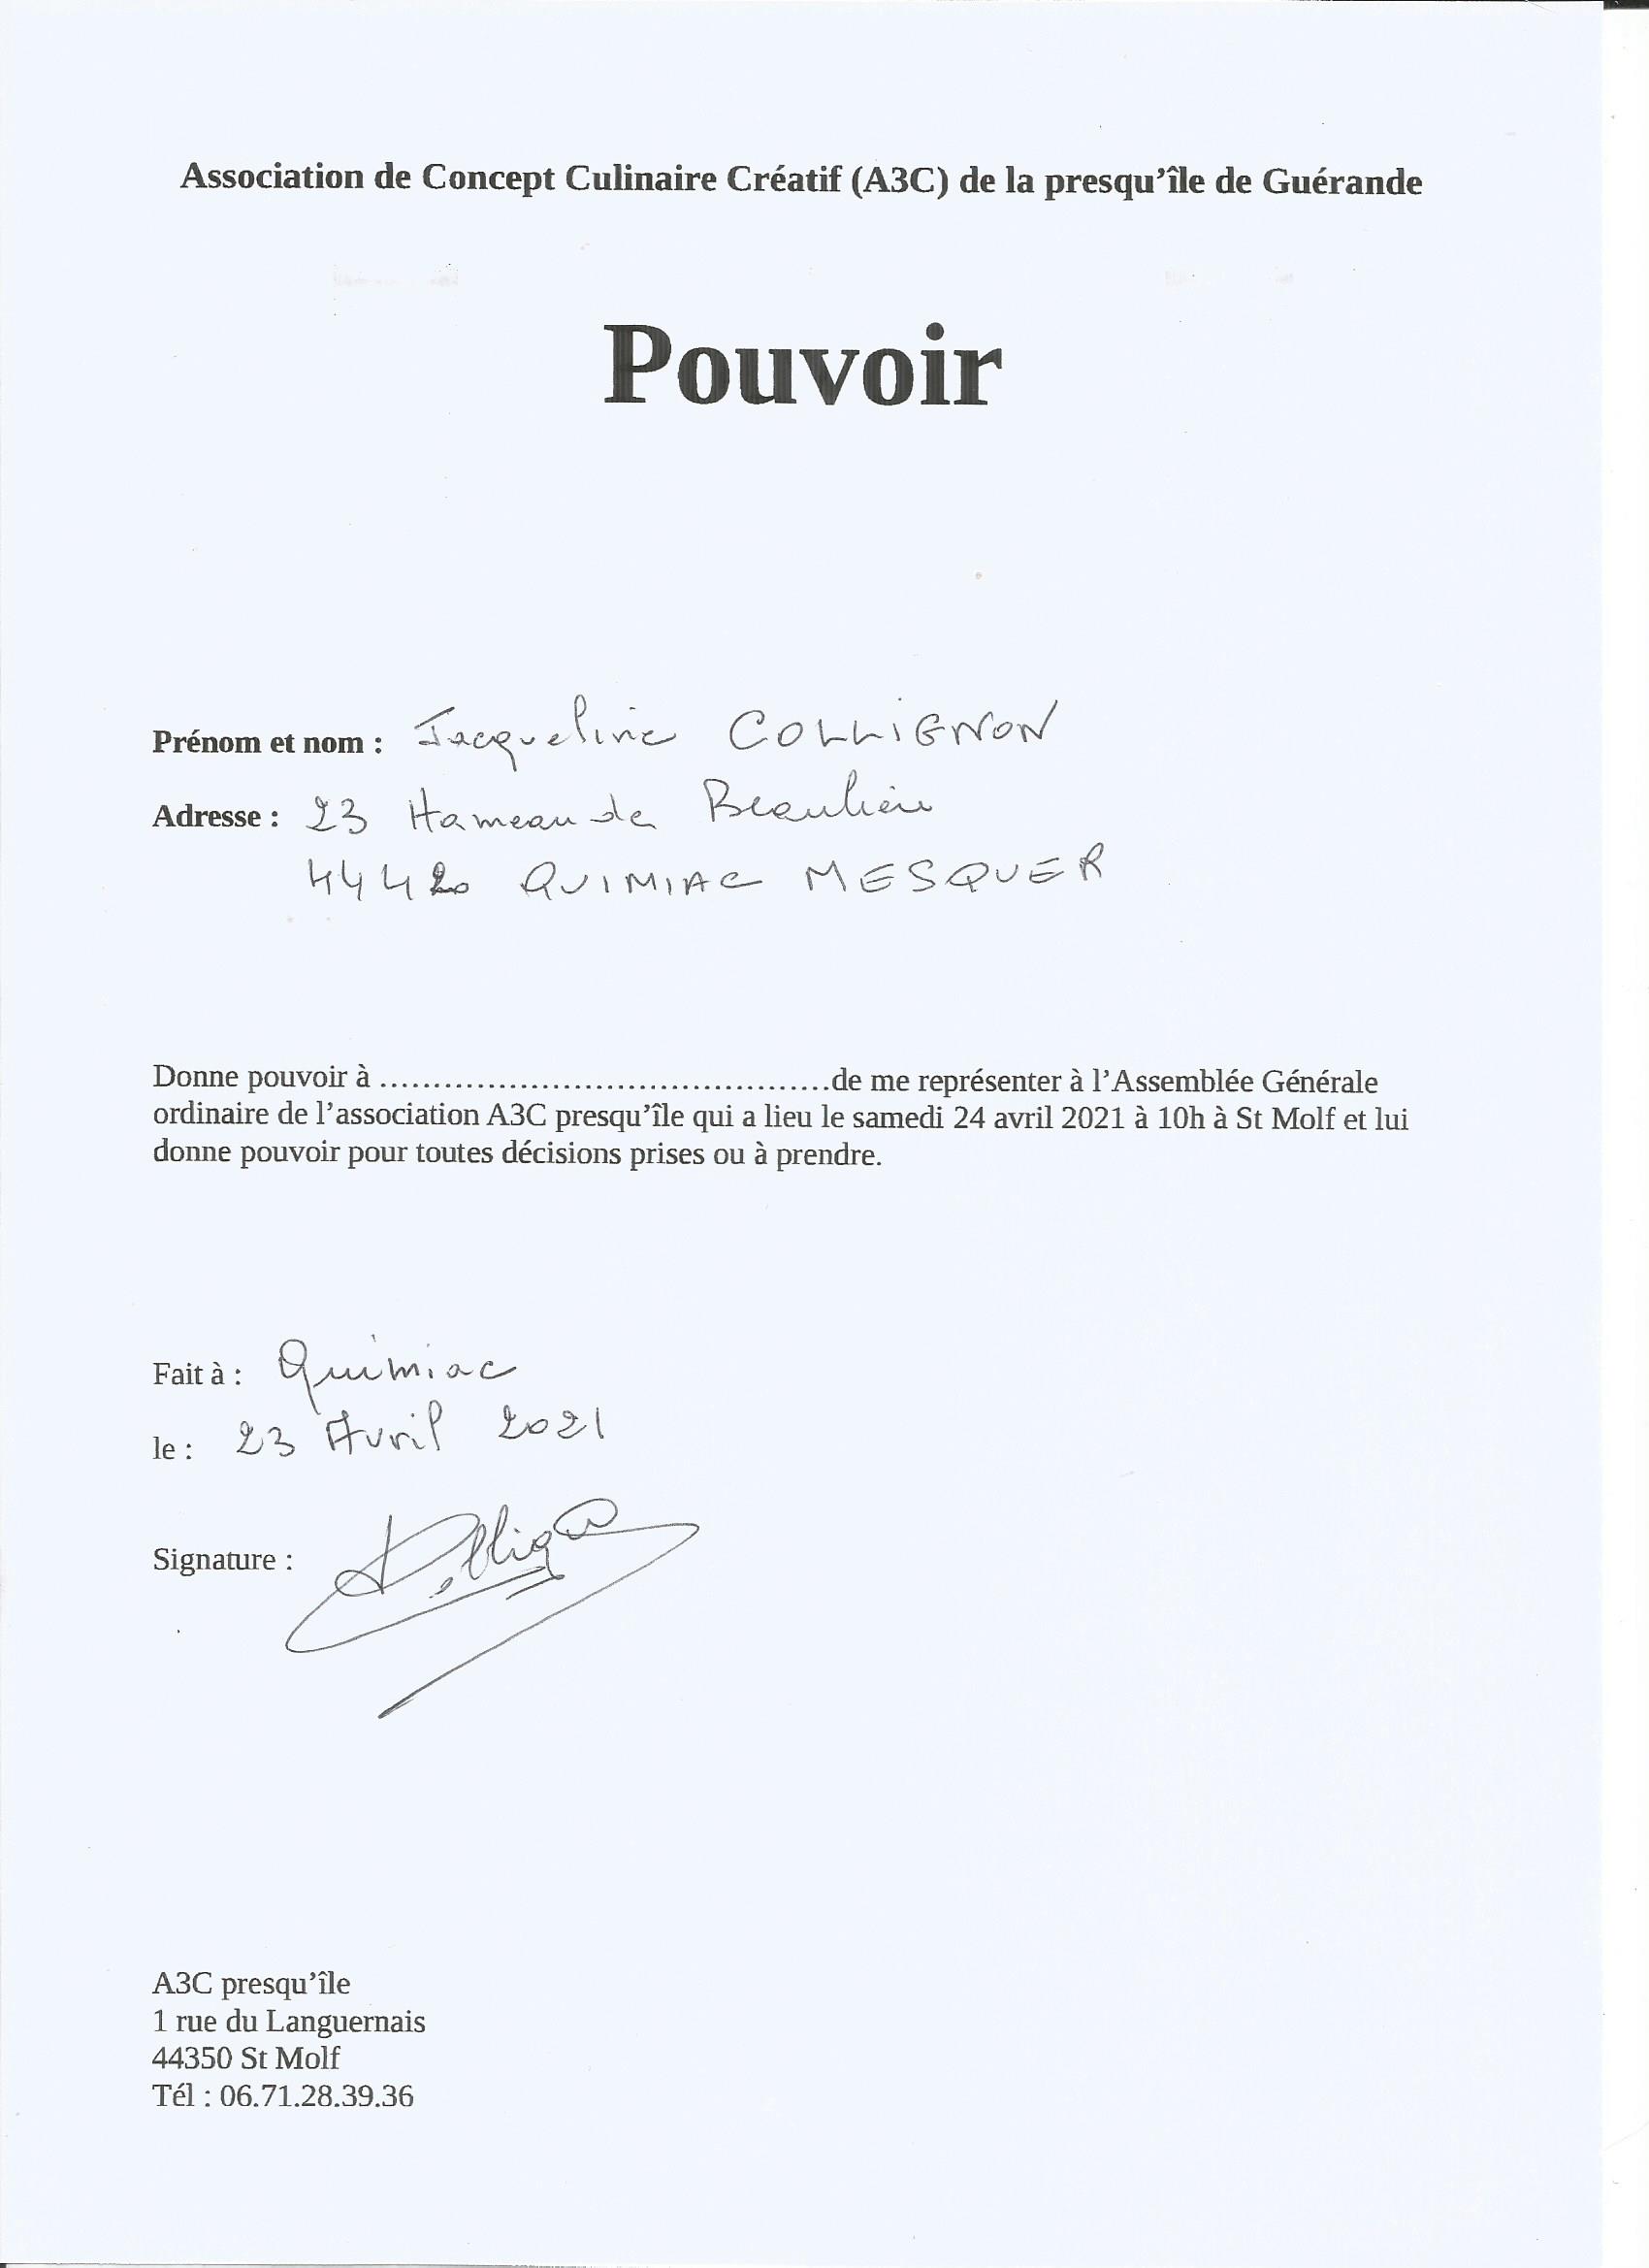 Association de Concept Culinaire Créatif (A3C) de la presqu’île de Guérande
Pouvoir
Prénom et nom : Jacqueline COLLIGNON
Adresse : 23 Hameau de Beaulieu
44420 QUIMIAC MESQUER
Donne pouvoir à ..........................................de me représenter à l’Assemblée Générale
ordinaire de l’association A3C presqu’île qui a lieu le samedi 24 avril 2021 à 10h à St Molf et lui
donne pouvoir pour toutes décisions prises ou à prendre.
Fait à : Quimiac
le : 23 Avril 2021
Signature :
A3C presqu’île
1 rue du Languernais
44350 St Molf
Tél : 06.71.28.39.36